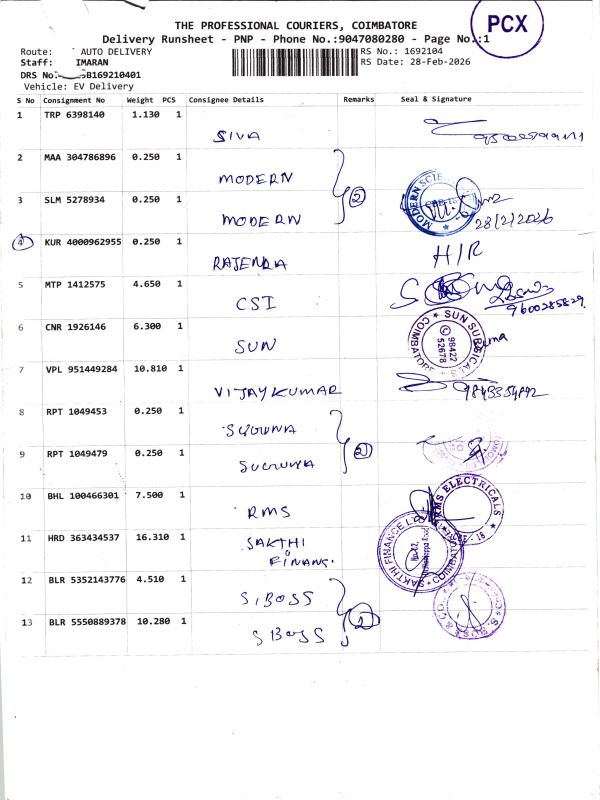 PCX
THE PROFESSIONAL COURIERS, COIMBATORE
Delivery Runsheet - PNP - Phone No.:9047080280 - Page No.:1
Route: AUTO DELIVERY
RS No.: 1692104
Staff: IMARAN
RS Date: 28-Feb-2026
DRS No. B169210401
Vehicle: EV Delivery
S No Consignment No Weight PCS Consignee Details Remarks Seal & Signature
1 TRP 6398140 1.130 1 SIVA
2 MAA 304786896 0.250 1 MODERN
3 SLM 5278934 0.250 1 MODERN 2 28/2/2026
4 KUR 4000962955 0.250 1 RAJENDRA H/R
5 MTP 1412575 4.650 1 CSI 9600285829
6 CNR 1926146 6.300 1 SUN SUN SURGICALS COIMBATORE 98422 52678
7 VPL 951449284 10.810 1 VIJAYKUMAR
8 RPT 1049453 0.250 1 SUGUNA
9 RPT 1049479 0.250 1 SUGUNA 2
10 BHL 100466301 7.500 1 RMS RMS ELECTRICALS
11 HRD 363434537 16.310 1 SAKTHI FINANS. SAKTHI FINANCE COIMBATORE
12 BLR 5352143776 4.510 1 S.BOSS
13 BLR 5550889378 10.280 1 S BOSS 2